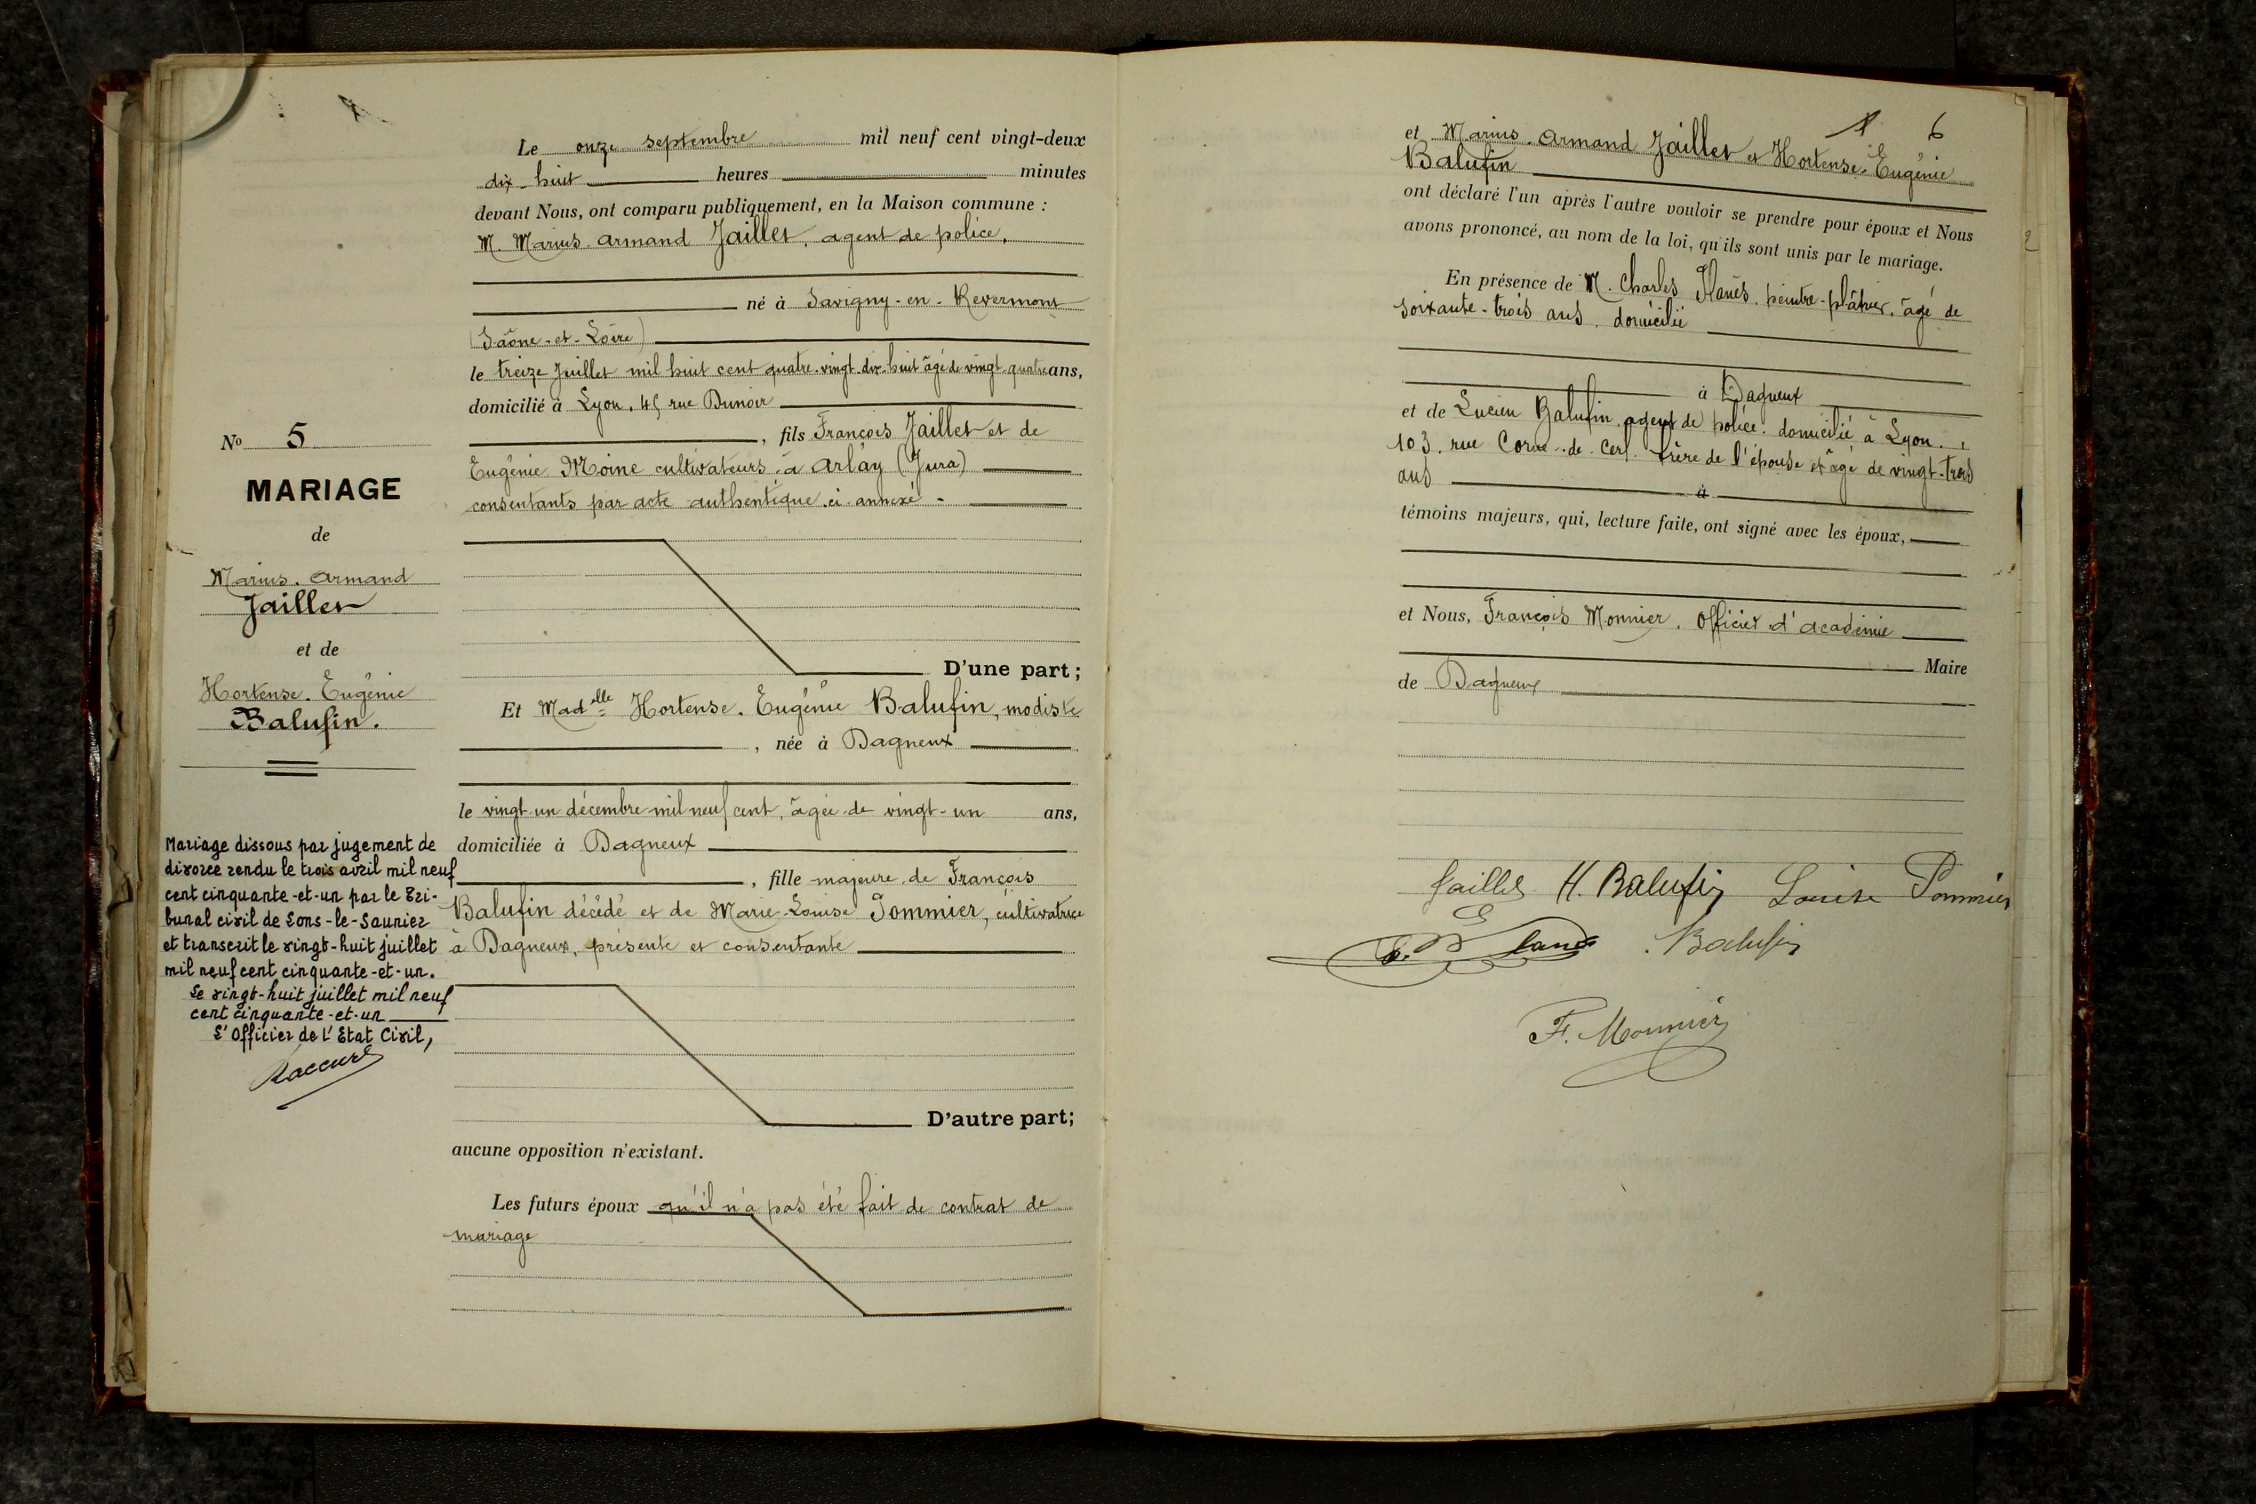 N° 5
MARIAGE
de
Marius. Armand
Jaillet
et de
Hortense. Eugénie
Balufin.
Mariage dissous par jugement de
divorce rendu le trois avril mil neuf
cent cinquante-et-un par le Tri-
bunal civil de Lons-le-Saunier
et transcrit le vingt-huit juillet
mil neuf cent cinquante-et-un.
Le vingt-huit juillet mil neuf
cent cinquante-et-un
L'Officier de l'Etat Civil,
Le onze septembre mil neuf cent vingt-deux
dix-huit heures minutes
devant Nous, ont comparu publiquement, en la Maison commune :
M. Marius. Armand Jaillet, agent de police,
né à Savigny-en-Revermont
(Saône-et-Loire)
le treize Juillet mil huit cent quatre-vingt-dix-huit âgé de vingt-quatre ans,
domicilié à Lyon, 45 rue Dunoir
, fils François Jaillet et de
Eugénie Moine cultivateurs à Arlay (Jura)
consentants par acte authentique ci-annexé -
D'une part ;
Et Madelle Hortense. Eugénie Balufin, modiste
, née à Dagneux
le vingt-un décembre mil neuf cent, âgée de vingt-un ans,
domiciliée à Dagneux
, fille majeure de François
Balufin décédé et de Marie-Louise Pommier, cultivatrice
à Dagneux, présente et consentante
D'autre part ;
aucune opposition n'existant.
Les futurs époux qu'il n'a pas été fait de contrat de
mariage
6
et Marius. Armand Jaillet et Hortense. Eugénie
Balufin
ont déclaré l'un après l'autre vouloir se prendre pour époux et Nous
avons prononcé, au nom de la loi, qu'ils sont unis par le mariage.
En présence de M. Charles peintre-plâtrier, âgé de
soixante-trois ans, domicilié
à Dagneux
et de Lucien Balufin, agent de police, domicilié à Lyon,
103, rue Corne-de-Cerf, frère de l'épouse et âgé de vingt-trois
ans à
témoins majeurs, qui, lecture faite, ont signé avec les époux,
et Nous, François Monnier, Officier d'académie
Maire
de Dagneux
Jaillet H. Balufin Louise Pommier
Balufin
F. Monnier